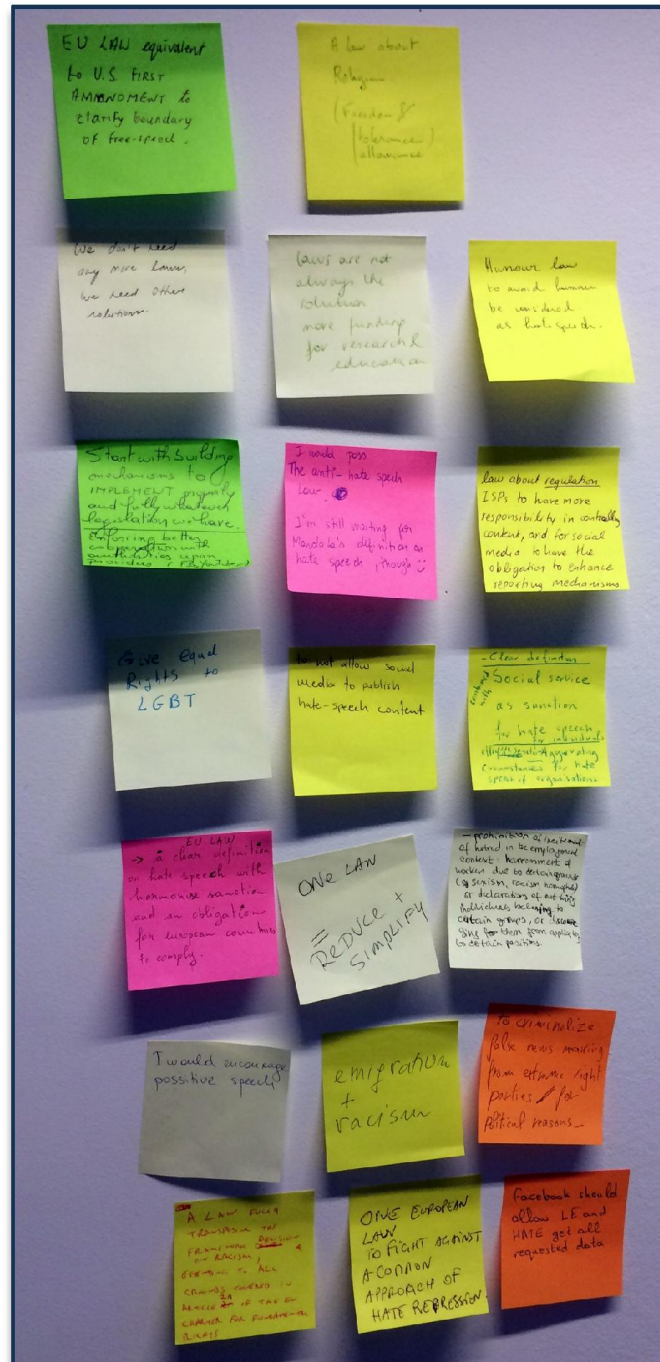 EU LAW equivalent
to U.S FIRST
AMMNDMENT to
clarify boundary
of free-speech.
A law about
Religion
(Freedom &
tolerance)
allowance
We don't need
any more laws,
we need other
solutions.
laws are not
always the
solution
more funding
for research &
education
Humour law
to avoid humour
be considered
as hate speech.
Start with building
mechanisms to
IMPLEMENT properly
and fully whatever
legislation we have.
Enforcing better
cooperation with
authorities upon
providers
I would pass
The anti-hate speech
law.
I'm still waiting for
Mandola's definition on
hate speech, though
law about regulation
ISPs to have more
responsibility in controlling
content, and for social
media to have the
obligation to enhance
reporting mechanisms
Give Equal
Rights to
LGBT
to not allow social
media to publish
hate-speech content
- Clear definition
combined with
Social service
as sanction
for hate speech
for individuals
Aggravating
circumstances for hate
speech organisations
EU LAW
→ a clear definition
on hate speech with
harmonise sanction
and an obligation
for european countries
to comply.
ONE LAW
=
REDUCE +
SIMPLIFY
- prohibition of
of hatred in the employment
context: harassment of
workers due to certain grounds
(eg sexism, racism
or declarations of not hiring
individuals belonging to
certain groups, or
for them from applying
to certain positions.
I would encourage
possitive speech
emigration
+
racism
To criminalize
false news
from extreme right
parties for
Political reasons_
A LAW FULLY
TRANSPOSING THE
FRAMEWORK DECISION
ON RACISM, &
EXTENDING TO ALL
GROUNDS COVERED IN
ARTICLE 21 OF THE EU
CHARTER FOR FUNDAMENTAL
RIGHTS
ONE EUROPEAN
LAW
TO FIGHT AGAINST
A COMMON
APPROACH OF
HATE REPRESSION.
Facebook should
allow LE and
HATE get all
requested data